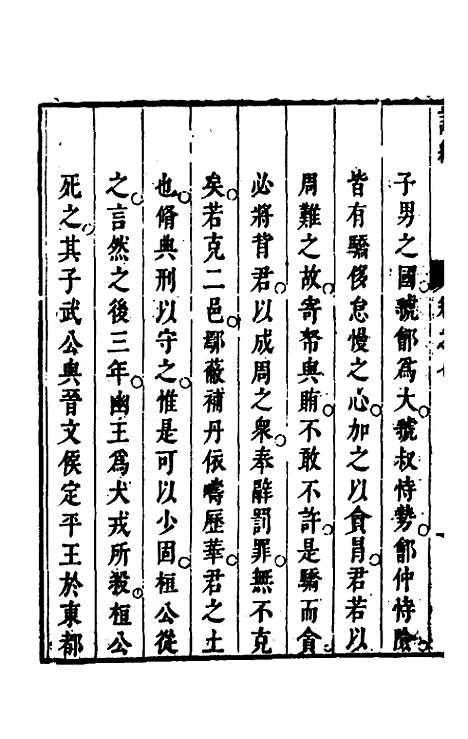 子男之國虢鄶為大虢叔恃勢鄶仲恃險
皆有驕侈怠慢之心加之以貪冒君若以
周難之故寄帑與賄不敢不許是驕而貪
必將背君以成周之衆奉辭罰罪無不克
矣若克二邑鄢蔽補丹依疇歷華君之土
也脩典刑以守之惟是可以少固桓公從
之言然之後三年幽王為犬戎所殺桓公
死之其子武公與晉文侯定平王於東都